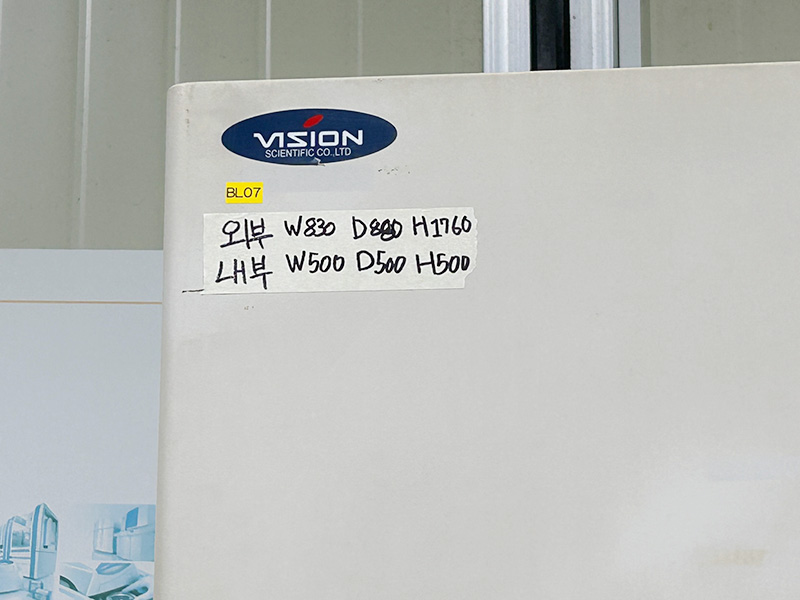 VISION
SCIENTIFIC CO.,LTD
BL07
외부 W830 D880 H1760
내부 W500 D500 H500